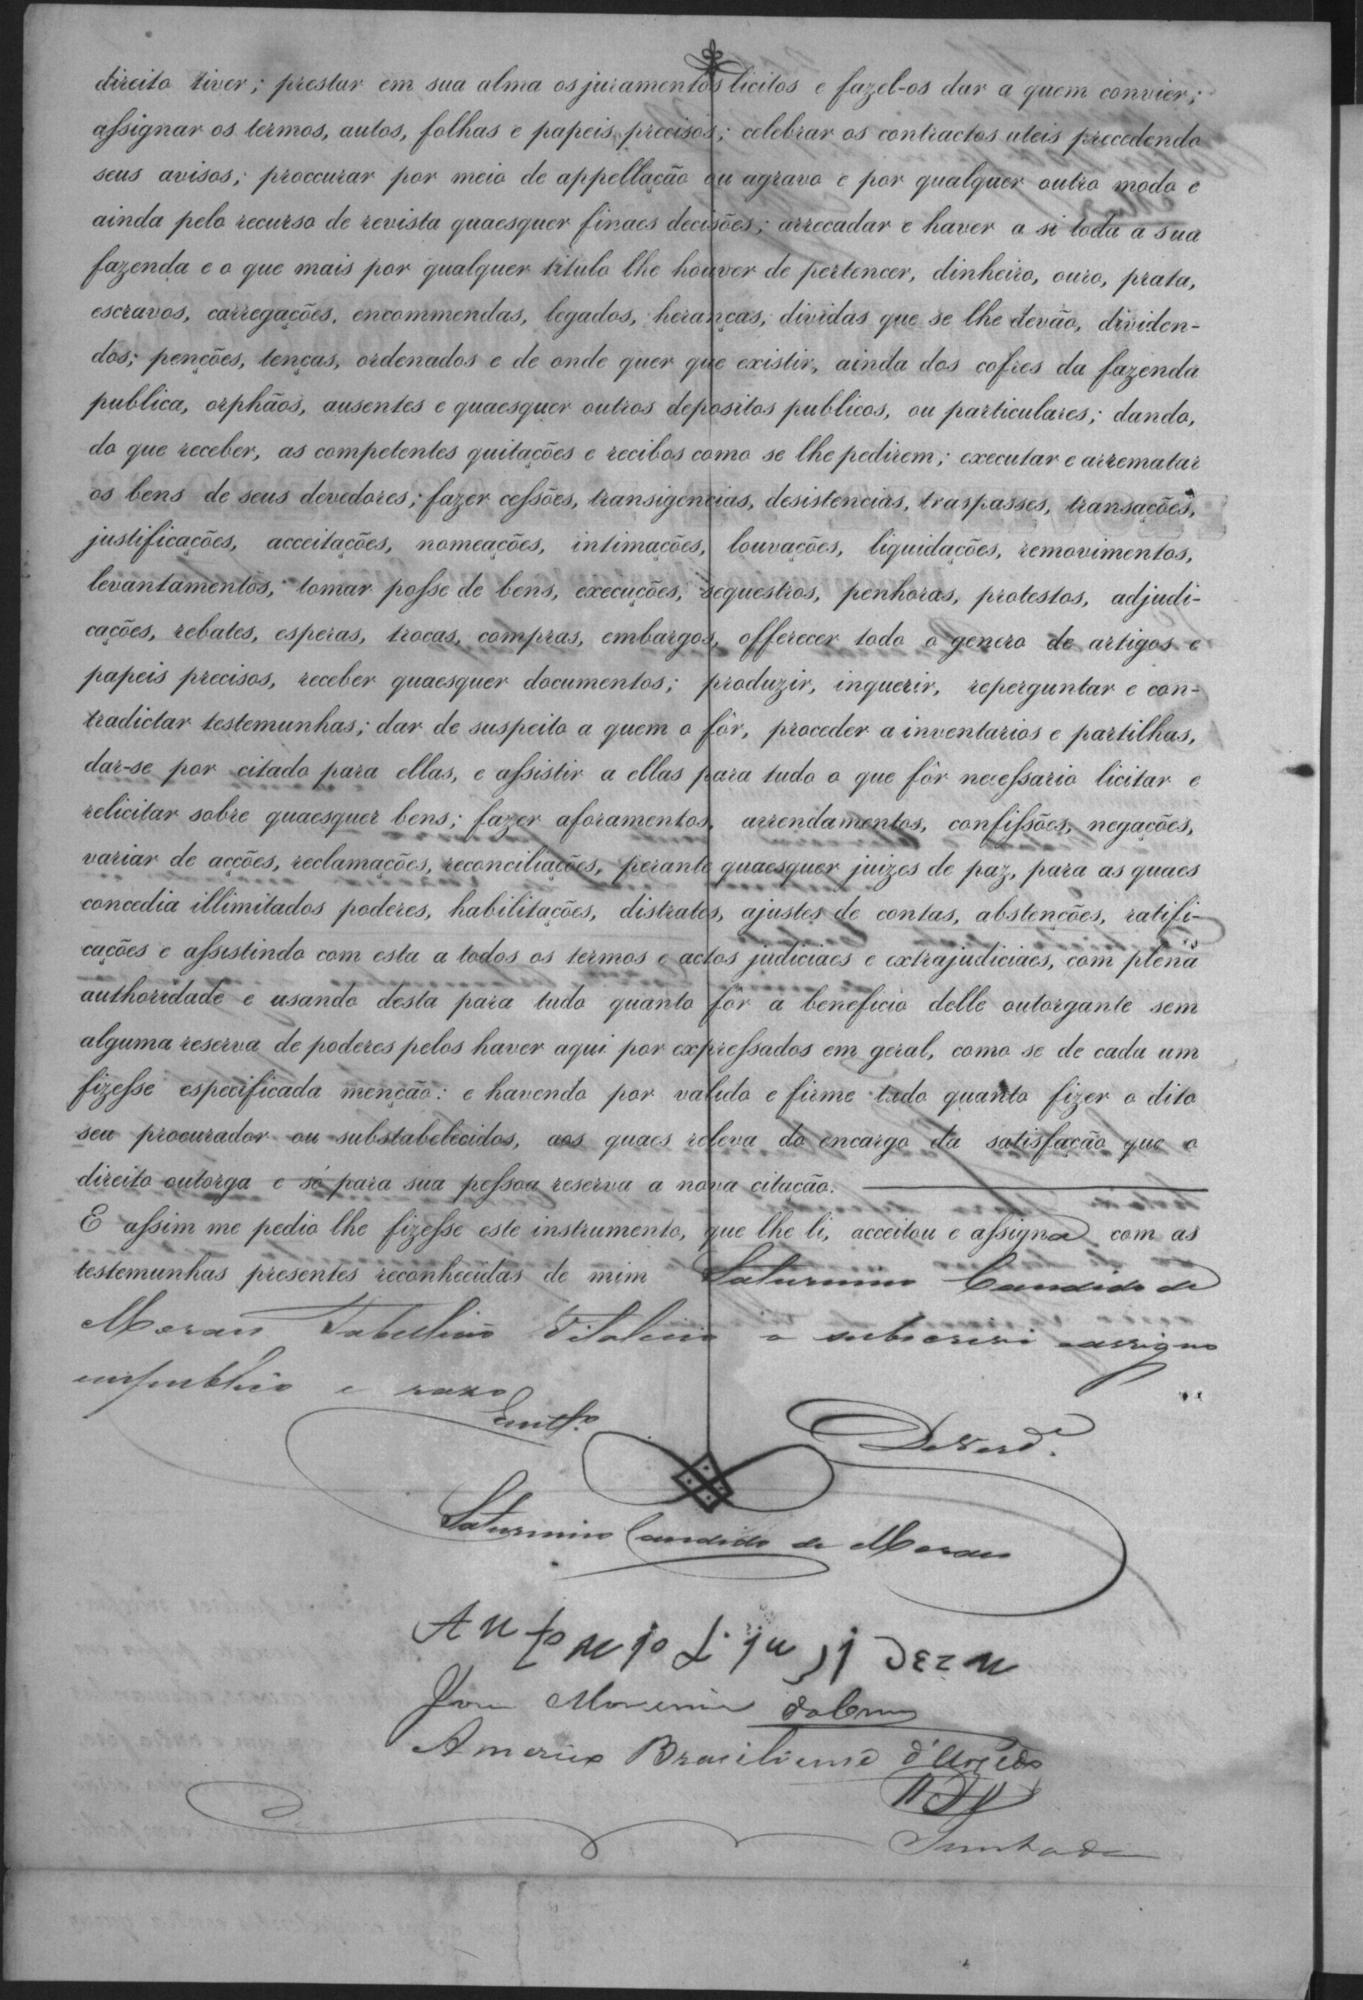 direito tiver; prestar em sua alma os juramentos licitos e fazel-os dar a quem convier;
assignar os termos, autos, folhas e papeis precisos; celebrar os contractos uteis precedendo
seus avisos; proccurar por meio de appellação ou agravo e por qualquer outro modo e
ainda pelo recurso de revista quaesquer finaes decisões; arrecadar e haver a si toda a sua
fazenda e o que mais por qualquer titulo lhe houver de pertencer, dinheiro, ouro, prata,
escravos, carregações, encommendas, legados, heranças, dividas que se lhe devão, dividen-
dos; penções, tenças, ordenados e de onde quer que existir, ainda dos cofres da fazenda
publica, orphãos, ausentes e quaesquer outros depositos publicos, ou particulares; dando,
do que receber, as competentes quitações e recibos como se lhe pedirem; executar e arrematar
os bens de seus devedores; fazer cessões, transigencias, desistencias, traspasses, transações,
justificações, acceitações, nomeações, intimações, louvações, liquidações, removimentos,
levantamentos; tomar posse de bens, execuções, sequestros, penhoras, protestos, adjudi-
cações, rebates, esperas, trocas, compras, embargos, offerecer todo o genero de artigos e
papeis precisos, receber quaesquer documentos; produzir, inquerir, reperguntar e con-
tradictar testemunhas; dar de suspeito a quem o fôr, proceder a inventarios e partilhas,
dar-se por citado para ellas, e assistir a ellas para tudo o que fôr necessario licitar e
relicitar sobre quaesquer bens; fazer aforamentos, arrendamentos, confissões, negações,
variar de acções, reclamações, reconciliações, perante quaesquer juizes de paz, para as quaes
concedia illimitados poderes, habilitações, distrates, ajustes de contas, abstenções, ratifi-
cações e assistindo com esta a todos os termos e actos judiciaes e extrajudiciaes, com plena
authoridade e usando desta para tudo quanto fôr a beneficio delle outorgante sem
alguma reserva de poderes pelos haver aqui por expressados em geral, como se de cada um
fizesse especificada menção: e havendo por valido e firme tudo quanto fizer o dito
seu procurador ou substabelecidos, aos quaes releva do encargo da satisfação que o
direito outorga e só para sua pessoa reserva a nova citação.
E assim me pedio lhe fizesse este instrumento, que lhe li, acceitou e assigna com as
testemunhas presentes reconhecidas de mim Saturnino Candido de
Moraes Tabellião Vitalicio o subscrevi e assigno
em publico e raso
Em tt.º De Verd.e
Saturnino Candido de Moraes
Antonio
José Moreira da
Americo Brasiliense d'
Juntada